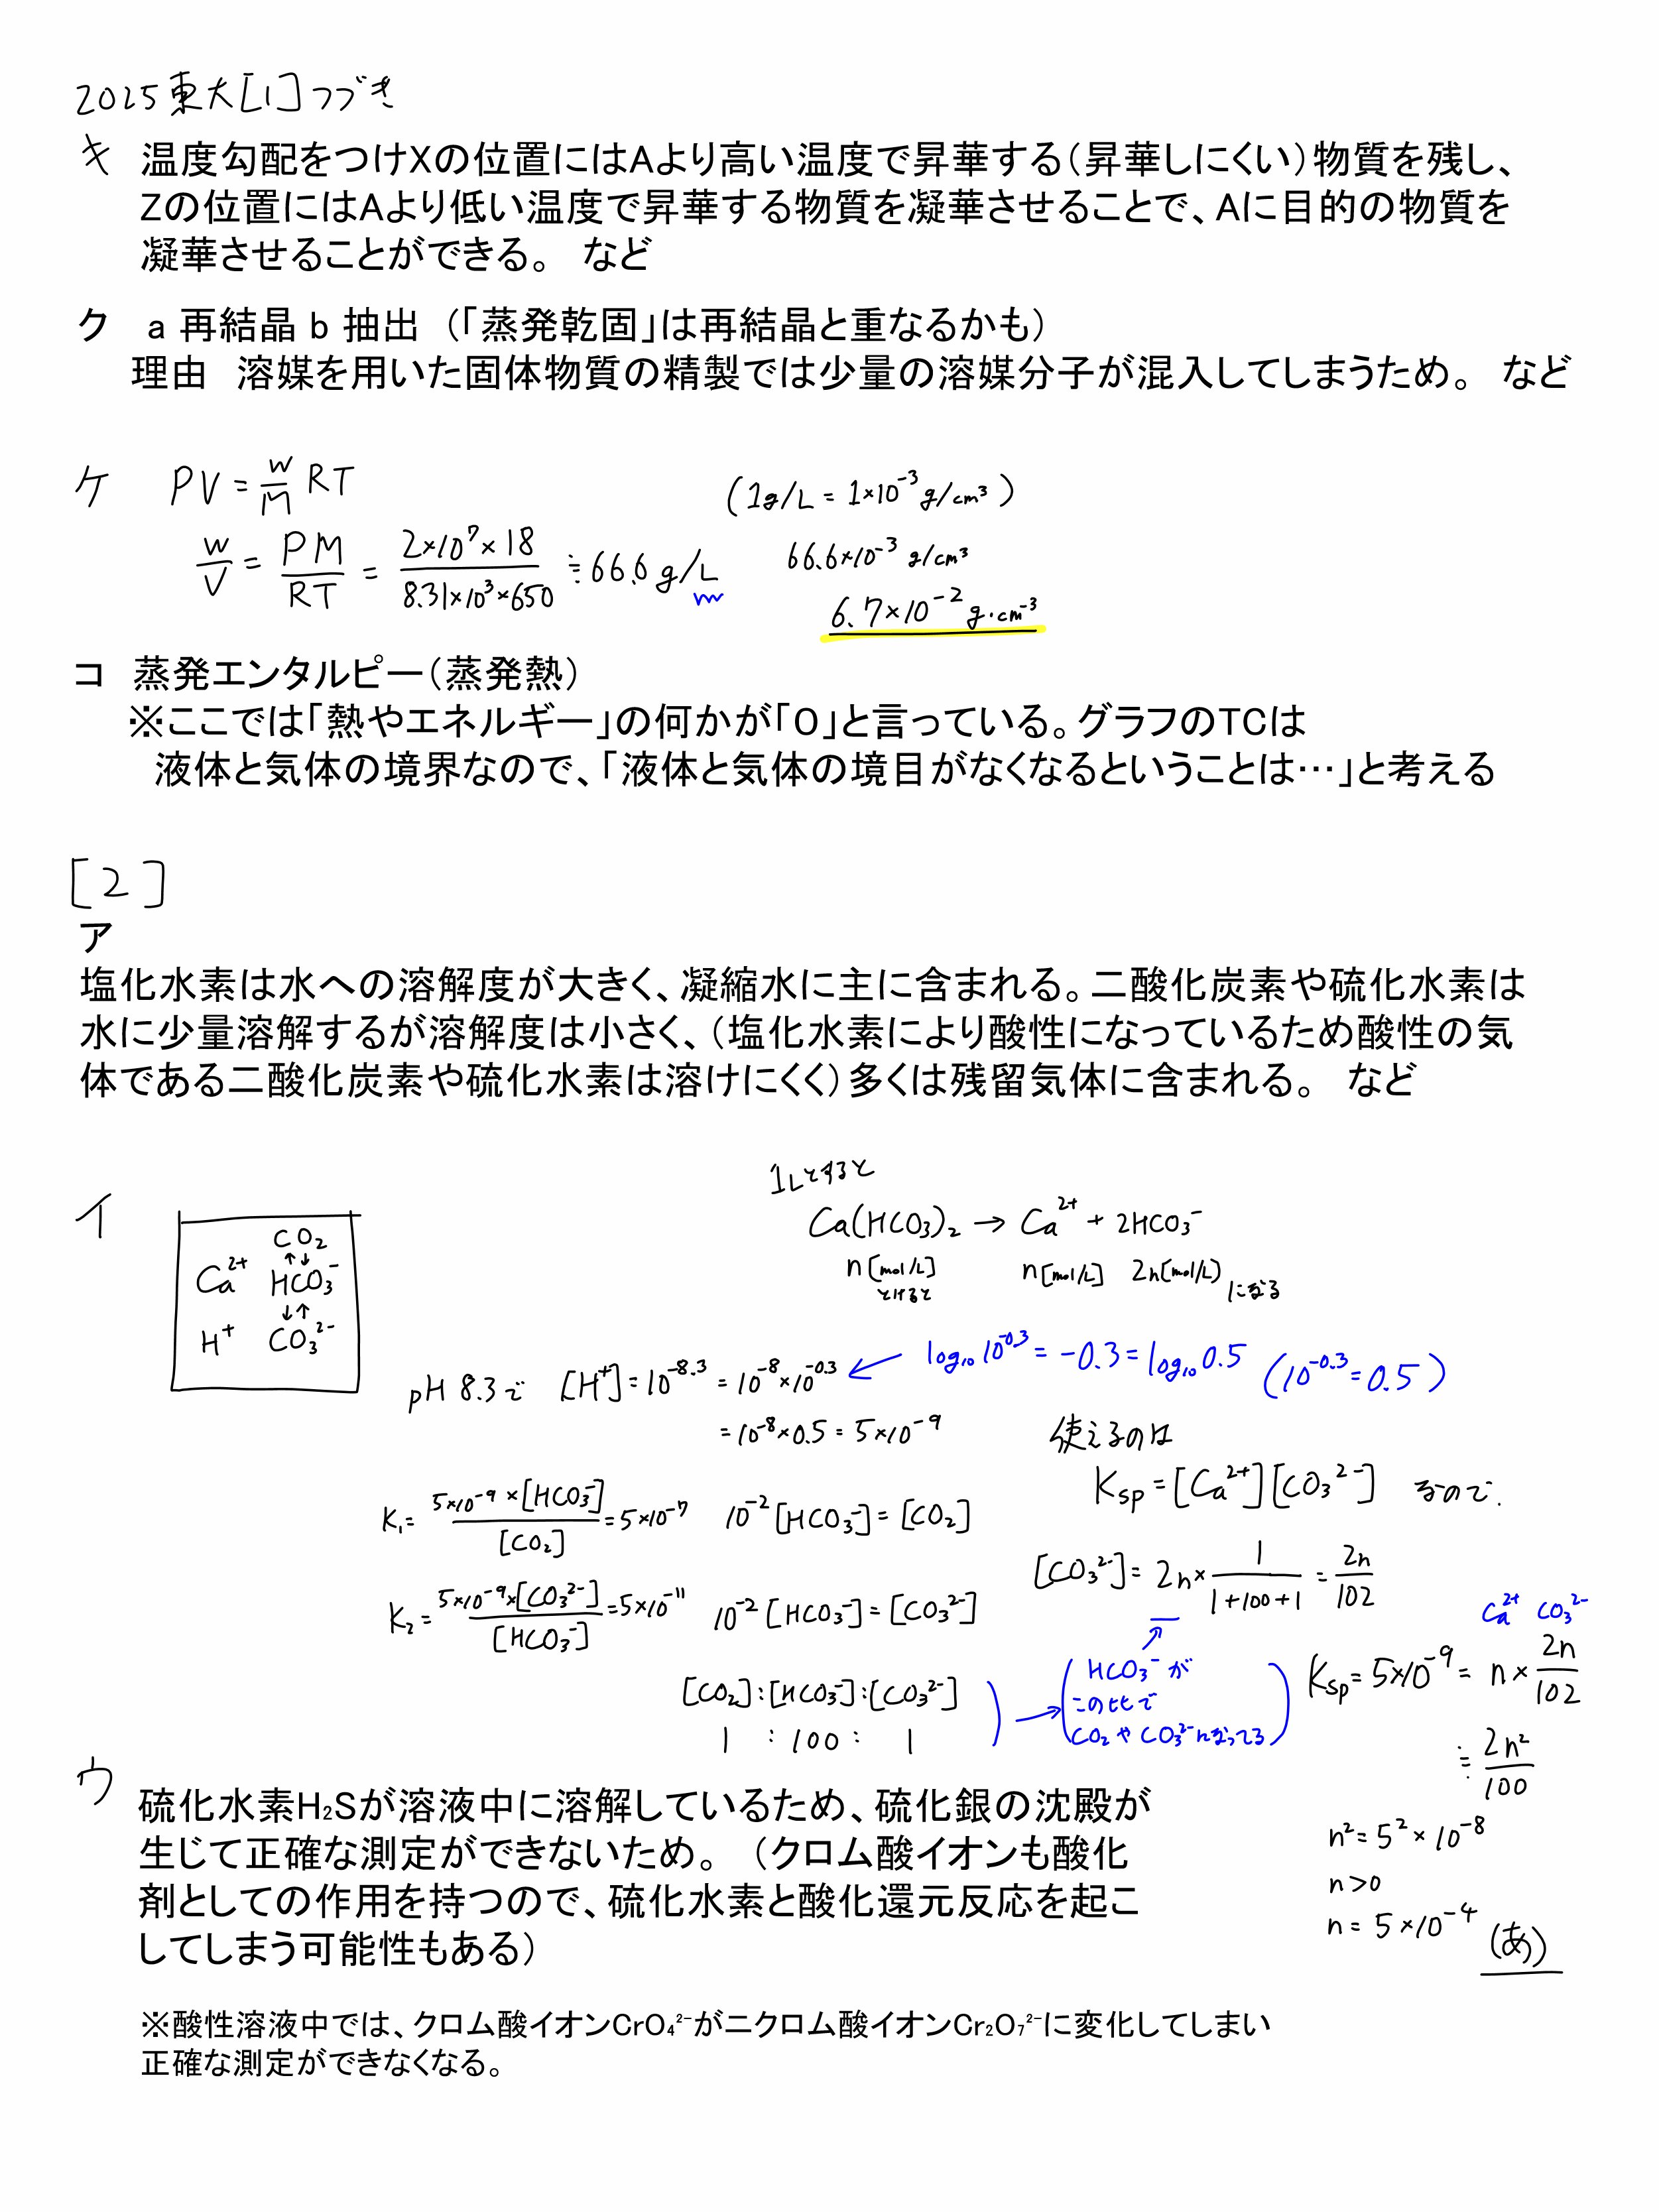 2025東大[1]つづき
キ 温度勾配をつけXの位置にはAより高い温度で昇華する(昇華しにくい)物質を残し、
Zの位置にはAより低い温度で昇華する物質を凝華させることで、Aに目的の物質を
凝華させることができる。 など
ク a 再結晶 b 抽出 (「蒸発乾固」は再結晶と重なるかも)
理由 溶媒を用いた固体物質の精製では少量の溶媒分子が混入してしまうため。 など
ケ PV = w/M RT
(1g/L = 1×10⁻³ g/cm³)
w/V = PM/RT = 2×10⁷×18/8.31×10³×650 ≒ 66.6 g/L
66.6×10⁻³ g/cm³
6.7×10⁻² g・cm⁻³
コ 蒸発エンタルピー(蒸発熱)
※ここでは「熱やエネルギー」の何かが「0」と言っている。グラフのTCは
液体と気体の境界なので、「液体と気体の境目がなくなるということは…」と考える
[2]
ア
塩化水素は水への溶解度が大きく、凝縮水に主に含まれる。二酸化炭素や硫化水素は
水に少量溶解するが溶解度は小さく、(塩化水素により酸性になっているため酸性の気
体である二酸化炭素や硫化水素は溶けにくく)多くは残留気体に含まれる。 など
イ
CO₂
↑↓
Ca²⁺ HCO₃⁻
↓↑
H⁺ CO₃²⁻
1Lとすると
Ca(HCO₃)₂ → Ca²⁺ + 2HCO₃⁻
n[mol/L] n[mol/L] 2n[mol/L] になる
とけると
pH 8.3で [H⁺] = 10⁻⁸·³ = 10⁻⁸×10⁻⁰·³
← log₁₀10⁻⁰·³ = -0.3 = log₁₀0.5 (10⁻⁰·³ = 0.5)
= 10⁻⁸×0.5 = 5×10⁻⁹
K₁ = 5×10⁻⁹×[HCO₃⁻]/[CO₂] = 5×10⁻⁷ 10⁻²[HCO₃⁻] = [CO₂]
K₂ = 5×10⁻⁹×[CO₃²⁻]/[HCO₃⁻] = 5×10⁻¹¹ 10⁻²[HCO₃⁻] = [CO₃²⁻]
[CO₂]:[HCO₃⁻]:[CO₃²⁻]
1 : 100 : 1
使えるのは
Ksp = [Ca²⁺][CO₃²⁻] なので.
[CO₃²⁻] = 2n × 1/1+100+1 = 2n/102
(HCO₃⁻が
この比で
CO₂やCO₃²⁻になってる)
Ca²⁺ CO₃²⁻
Ksp = 5×10⁻⁹ = n × 2n/102
≒ 2n²/100
n² = 5²×10⁻⁸
n>0
n = 5×10⁻⁴ (あ)
ウ 硫化水素H₂Sが溶液中に溶解しているため、硫化銀の沈殿が
生じて正確な測定ができないため。 (クロム酸イオンも酸化
剤としての作用を持つので、硫化水素と酸化還元反応を起こ
してしまう可能性もある)
※酸性溶液中では、クロム酸イオンCrO₄²⁻がニクロム酸イオンCr₂O₇²⁻に変化してしまい
正確な測定ができなくなる。